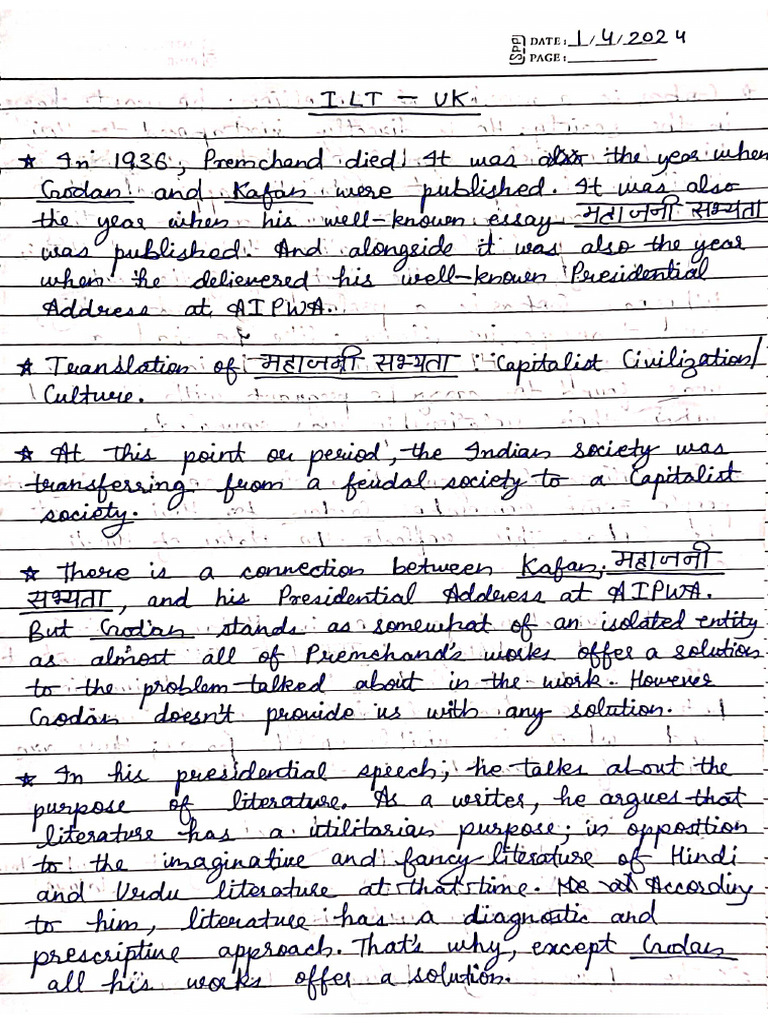 SPP DATE: 1/4/2024
PAGE:
I.LT – UK
★ In 1936, Premchand died. It was also the year when
Godan and Kafan were published. It was also
the year when his well-known essay महाजनी सभ्यता
was published. And alongside it was also the year
when he delievered his well-known Presidential
Address at AIPWA.
★ Translation of महाजनी सभ्यता : Capitalist Civilization/
Culture.
★ At this point or period, the Indian society was
transferring from a feudal society to a Capitalist
society.
★ There is a connection between Kafan, महाजनी
सभ्यता, and his Presidential Address at AIPWA.
But Godan stands as somewhat of an isolated entity
as almost all of Premchand's works offer a solution
to the problem talked about in the work. However
Godan doesn't provide us with any solution.
★ In his presidential speech, he talks about the
purpose of literature. As a writer, he argues that
literature has a utilitarian purpose, in opposition
to the imaginative and fancy literature of Hindi
and Urdu literature at that time. According
to him, literature has a diagnostic and
prescriptive approach. That's why, except Godan
all his works offer a solution.